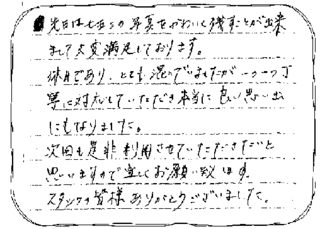 先日は七五三の写真をかわいく残すことが出来
まして大変満足しております。
休日であり、とても混んでいましたが一つ一つ丁
寧に対応していただき本当に良い思い出
にもなりました。
次回も是非利用させていただきたいと
思いますので宜しくお願い致します。
スタッフの皆様ありがとうございました。